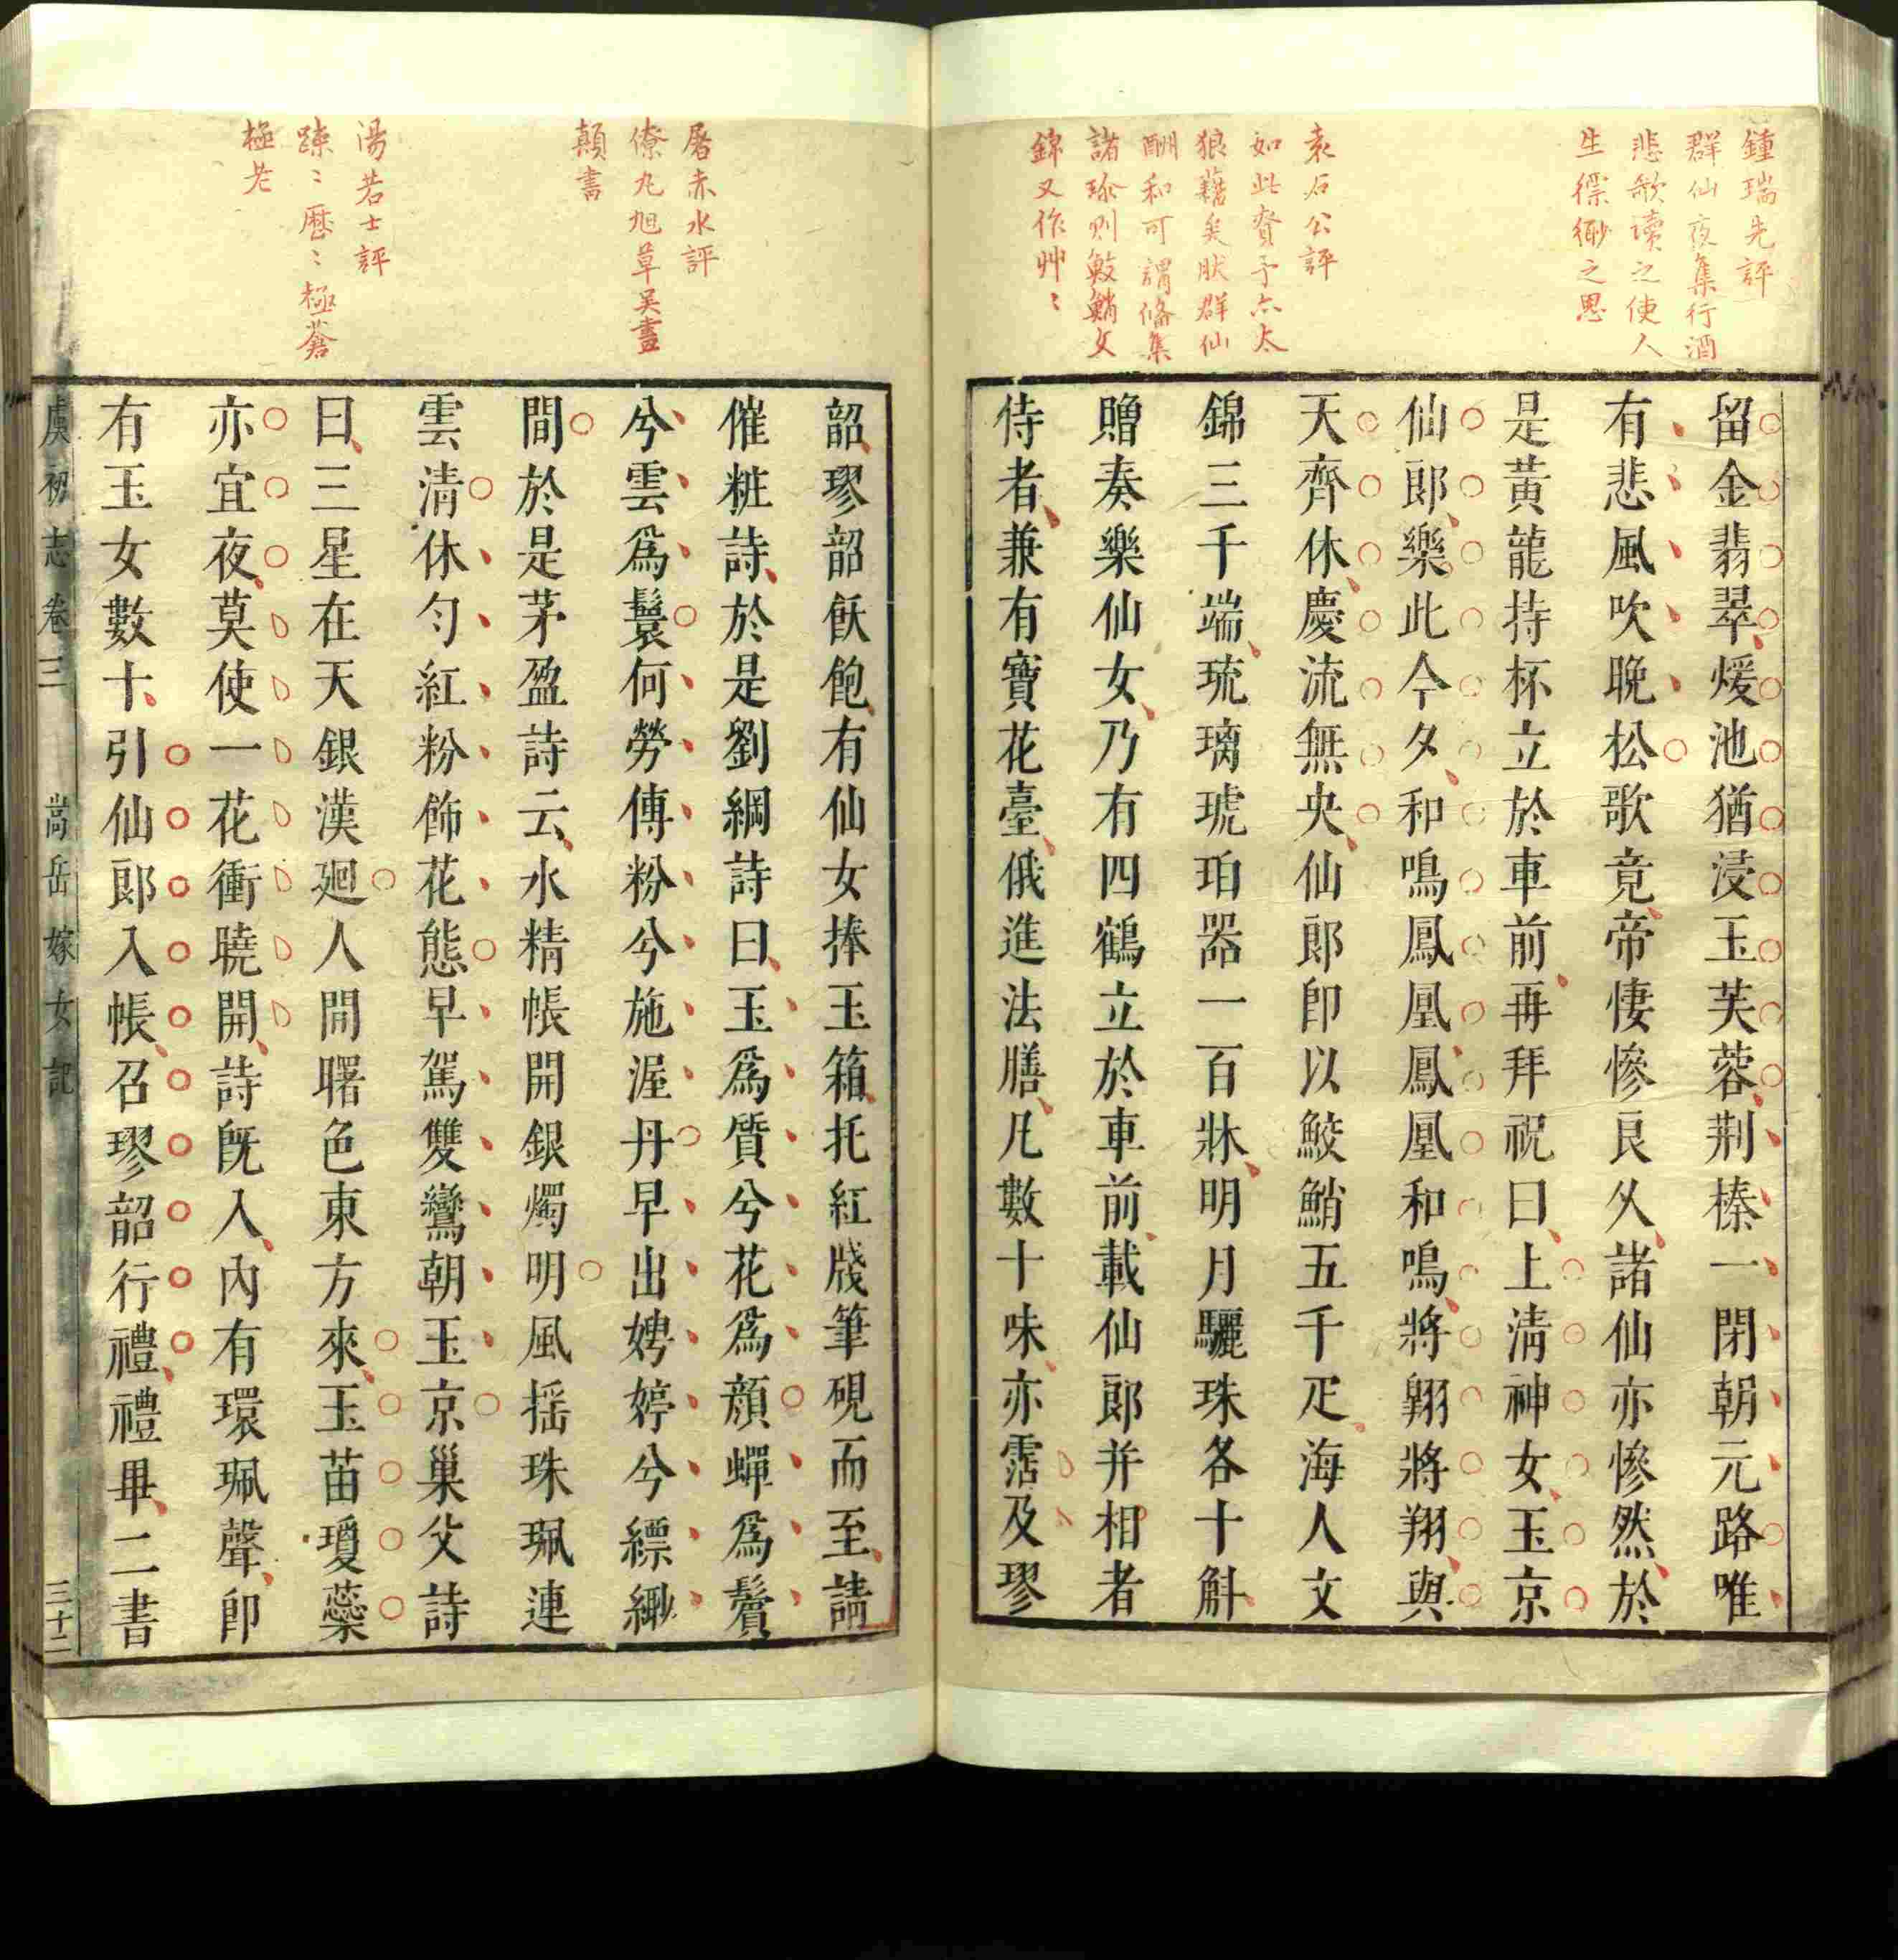 鍾瑞先評
群仙夜集行酒
悲歌讀之使人
生縹緲之思
袁石公評
如此賚予亦太
狼藉矣肰群仙
酬和可謂俻集
諸珎則鮫鮹文
錦又作艸〻
留金翡翠煖池猶浸玉芙蓉荆榛一閉朝元路唯
有悲風吹晚松歌竟帝悽慘良久諸仙亦慘然於
是黃龍持杯立於車前再拜祝曰上清神女玉京
仙郎樂此今夕和鳴鳳凰鳳凰和鳴將翱將翔與
天齊休慶流無央仙郎卽以鮫鮹五千疋海人文
錦三千端琉璃琥珀器一百牀明月驪珠各十斛
贈奏樂仙女乃有四鶴立於車前載仙郎并相者
侍者兼有寶花臺俄進法膳凡數十味亦霑及璆
屠赤水評
僚丸旭草吳畫
顛書
湯若士評
踈〻歷〻極蒼
極老
韶璆韶飫飽有仙女捧玉箱托紅牋筆硯而至請
催粧詩於是劉綱詩曰玉爲質兮花爲顏蟬爲鬢
兮雲爲鬟何勞傅粉兮施渥丹早出娉婷兮縹緲
間於是茅盈詩云水精帳開銀燭明風搖珠珮連
雲清休勻紅粉飾花態早駕雙鸞朝玉京巢父詩
曰三星在天銀漢迴人間曙色東方來玉苗瓊蘂
亦宜夜莫使一花衝曉開詩旣入內有環珮聲卽
有玉女數十引仙郎入帳召璆韶行禮禮畢二書
虞初志 卷三 嵩岳嫁女記 三十二